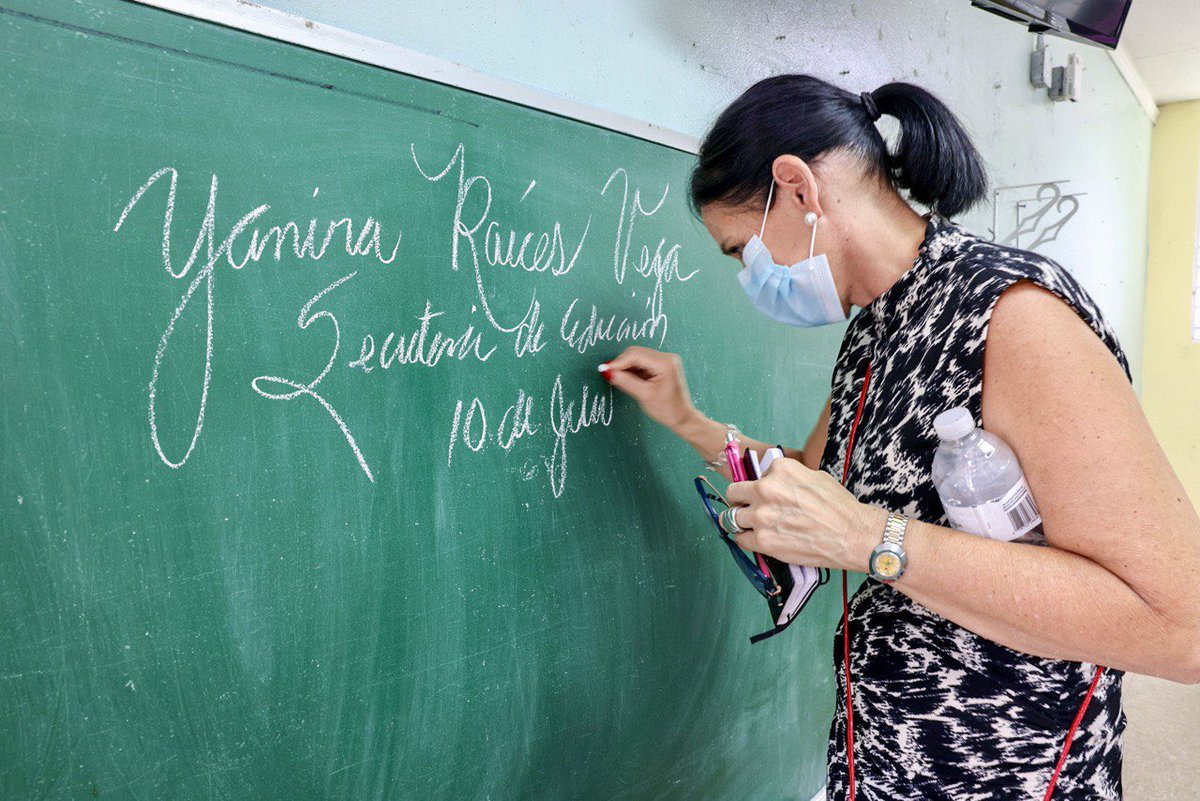 Yanina Raíces Vega
Secretaria de Educación
10 de Julio